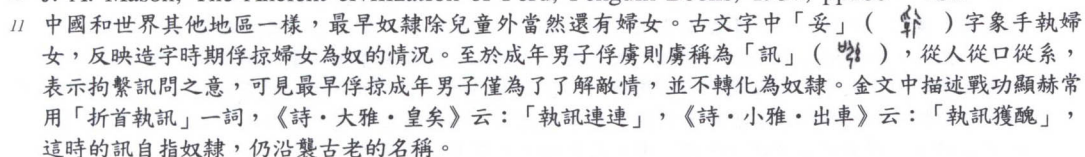 11 中國和世界其他地區一樣,最早奴隸除兒童外當然還有婦女。古文字中「妥」( )字象手執婦
女,反映造字時期俘掠婦女為奴的情況。至於成年男子俘虜則虜稱為「訊」( ),從人從口從系,
表示拘繫訊問之意,可見最早俘掠成年男子僅為了了解敵情,並不轉化為奴隸。金文中描述戰功顯赫常
用「折首執訊」一詞,《詩・大雅・皇矣》云:「執訊連連」,《詩・小雅・出車》云:「執訊獲醜」,
這時的訊自指奴隸,仍沿襲古老的名稱。